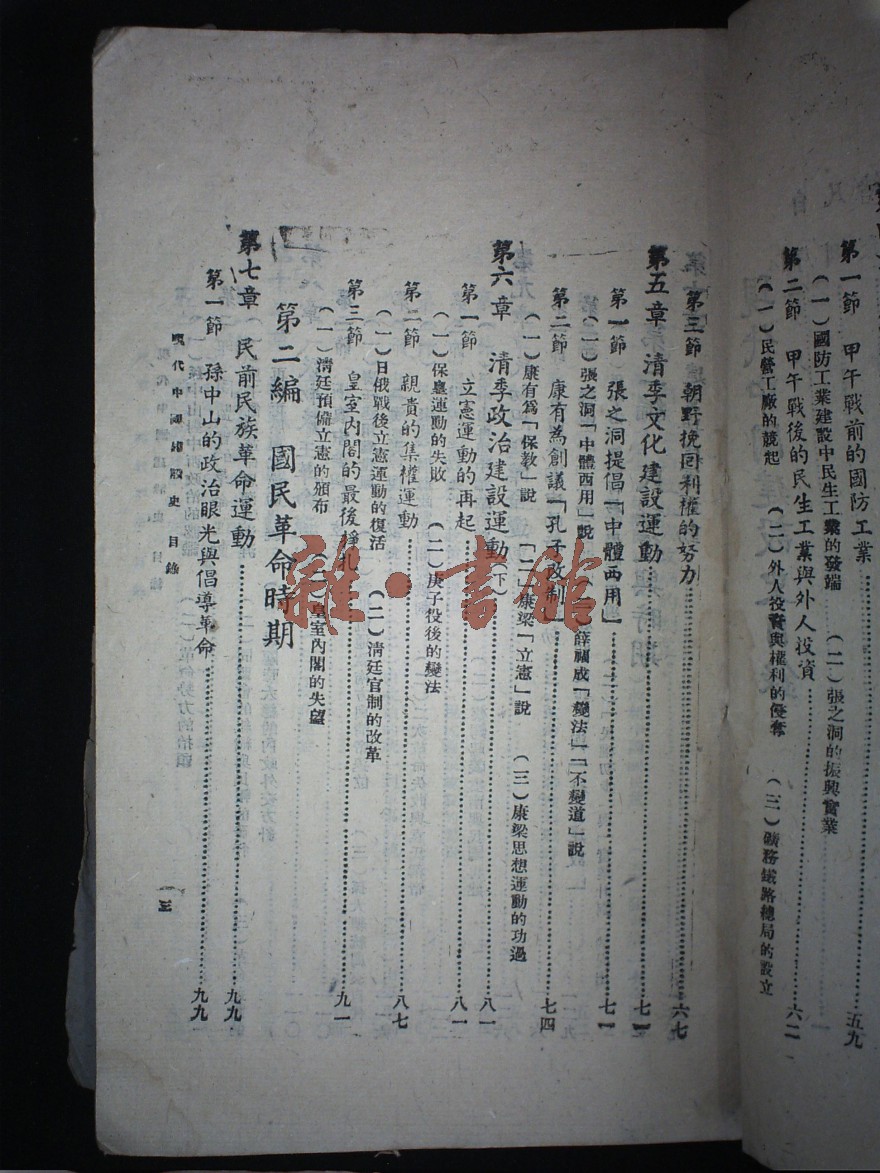 第一節 甲午戰前的國防工業……五九
(一)國防工業建設中民生工業的發端 (二)張之洞的振興實業
第二節 甲午戰後的民生工業與外人投資……六二
(一)民營工廠的競起 (二)外人投資與權利的侵奪 (三)礦務鐵路總局的設立
第三節 朝野挽回利權的努力……六七
第五章 清季文化建設運動……七一
第一節 張之洞提倡「中體西用」……七一
(一)張之洞「中體西用」說 (二)薛福成「變法」「不變道」說
第二節 康有為創議「孔子改制」……七四
(一)康有為「保教」說 「二」康梁「立憲」說 (三)康梁思想運動的功過
第六章 清季政治建設運動(下)……八一
第一節 立憲運動的再起……八一
(一)保囊運動的失敗 (二)庚子役後的變法
第二節 親貴的集權運動……八七
(一)日俄戰後立憲運動的復活 (二)清廷官制的改革
第三節 皇室內閣的最後掙扎……九一
(一)清廷預備立憲的頒布 (二)皇室內閣的失望
第二編 國民革命時期
第七章 民前民族革命運動……九九
第一節 孫中山的政治眼光與倡導革命……九九
現代中國建設史 目錄
三
雜·書館